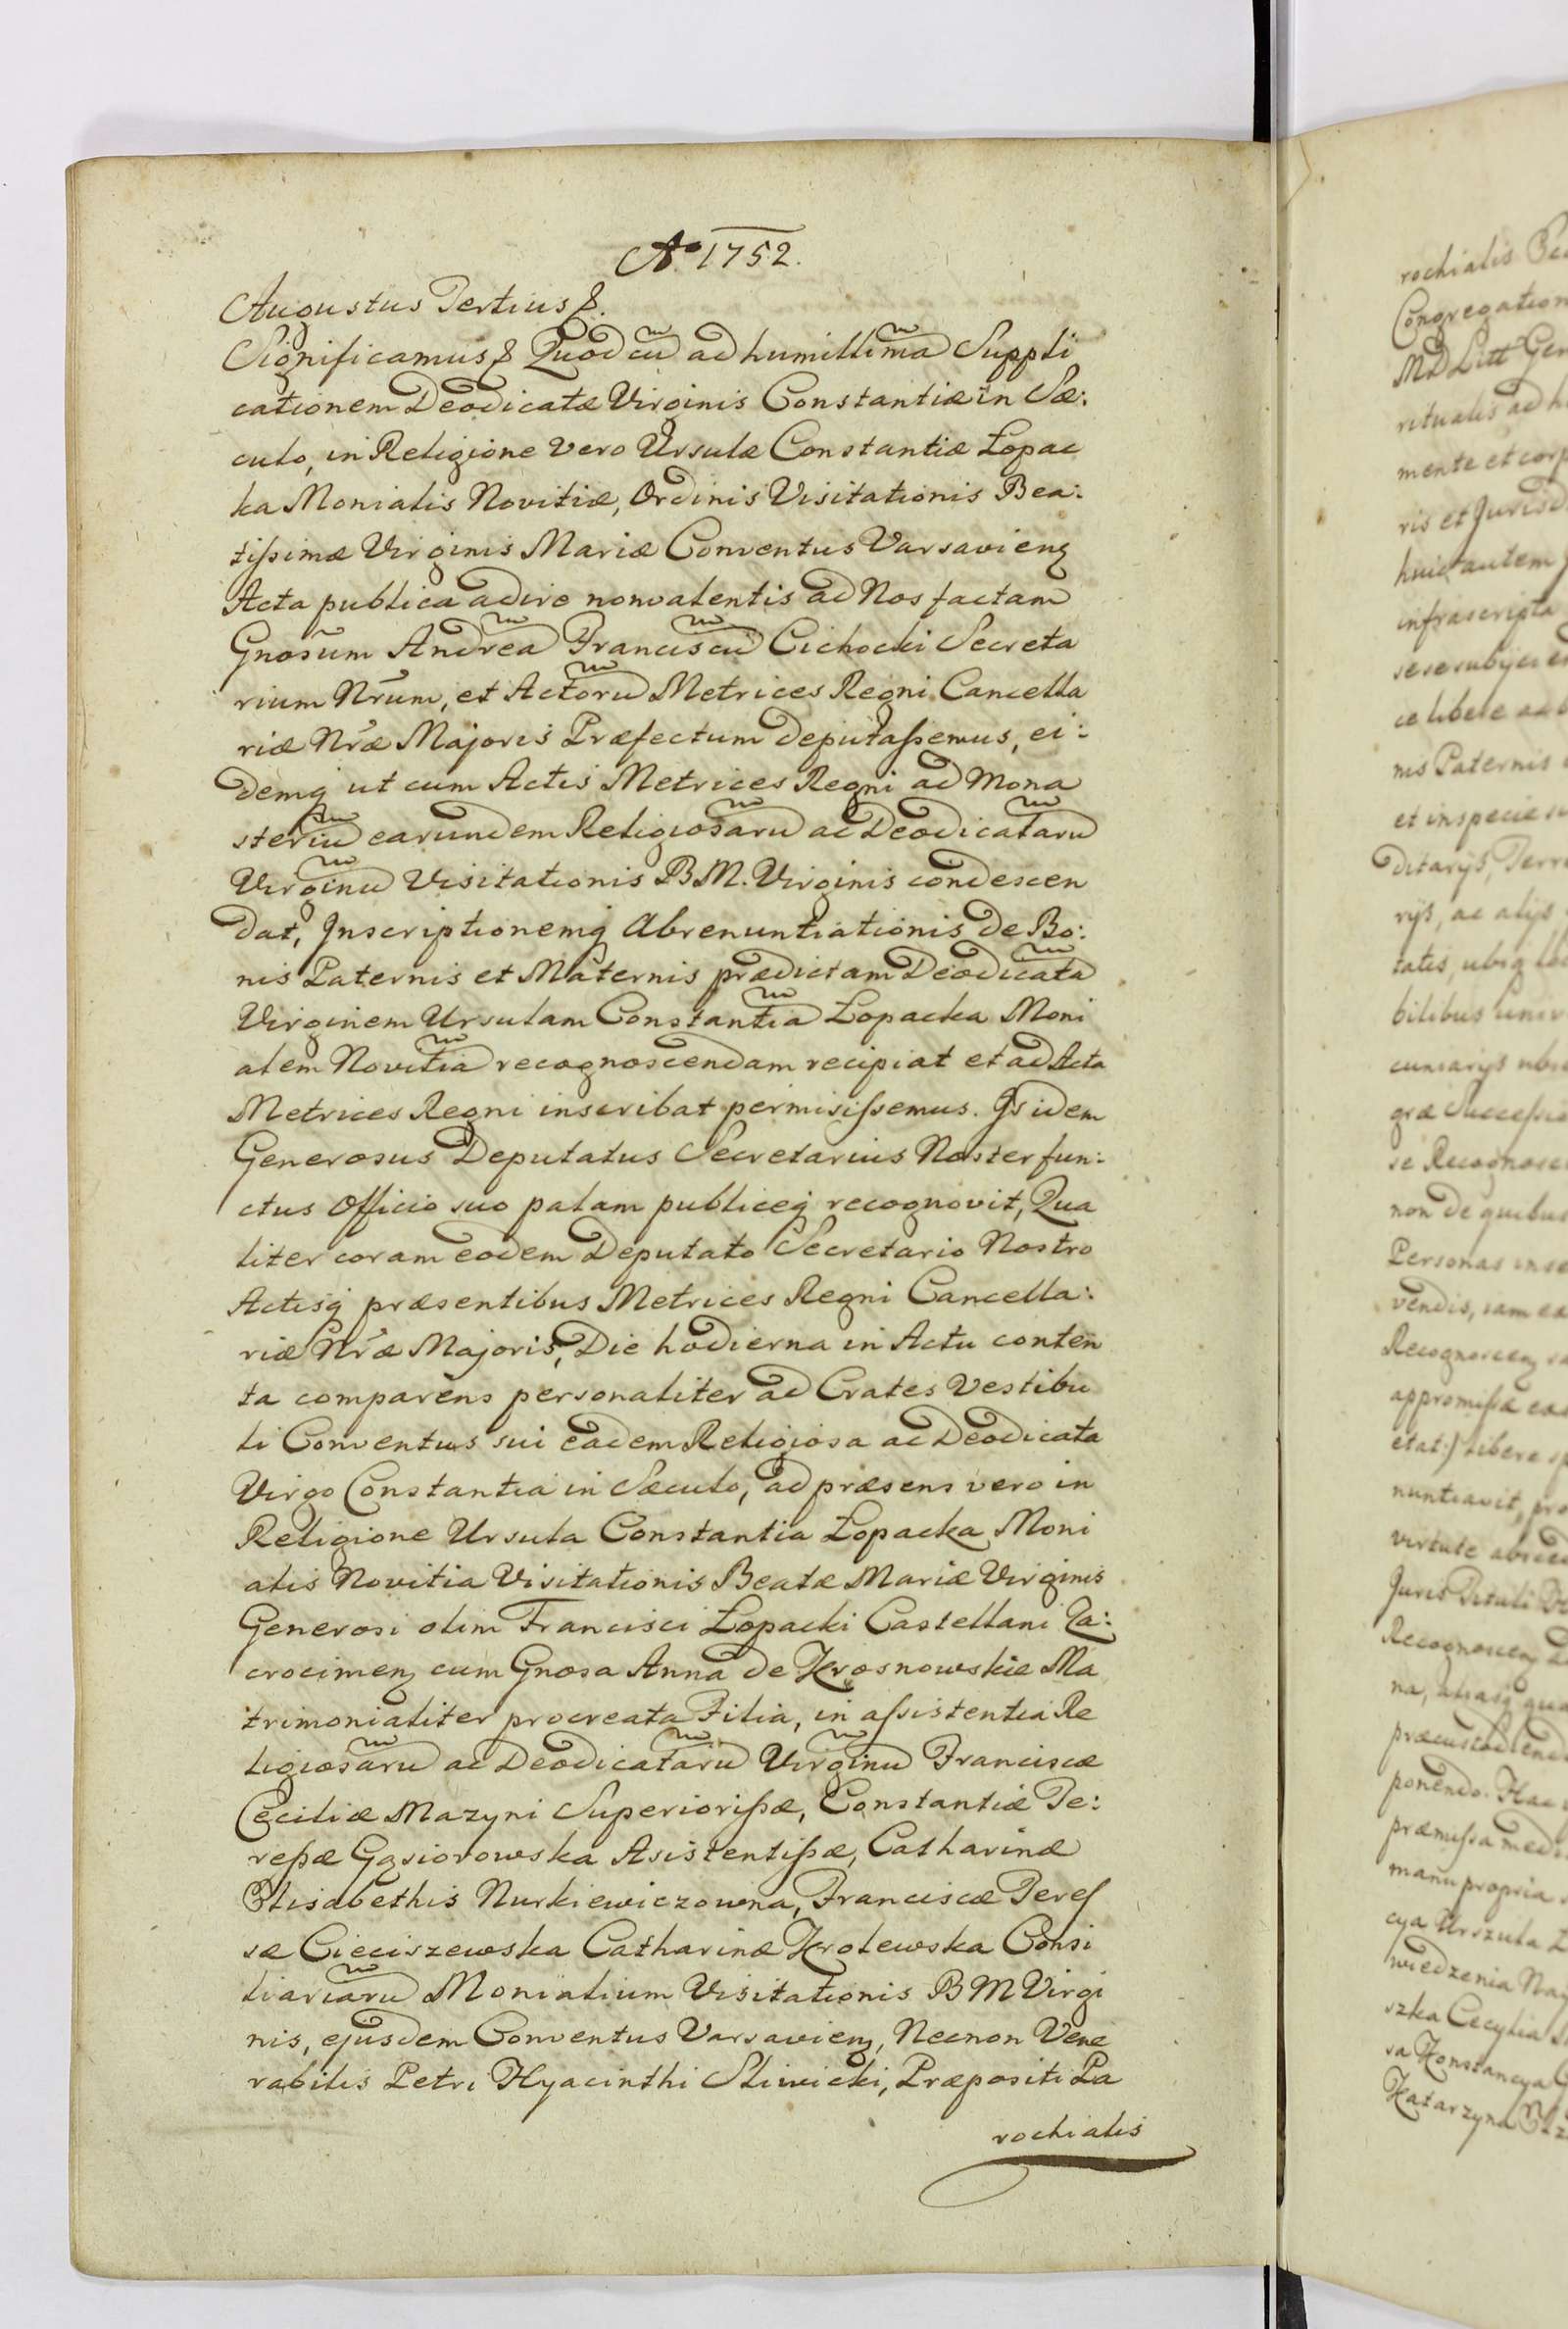 Aº 1752.
Augustus Tertius &.
Significamus & Quod cũ ad humillimã Suppli
cationem Deodicatæ Virginis Constantiæ in Sæ:
culo, in Religione vero Ursulæ Constantiæ Łopac
ka Monialis Novitiæ, Ordinis Visitationis Bea:
tißimæ Virginis Mariæ Conventus Varsavienȝ
Acta publica adire nonvalentis ad Nos factam
Gnosũm Andreã Franciscũ Cichocki Secreta
rium Nr̃um, et Actorũ Metrices Regni Cancella
riæ Nr̃æ Majoris Præfectum deputaßemus, ei:
demqȝ ut cum Actis Metrices Regni ad Mona
steriũ earundem Religiosarũ ac Deodicatarũ
Virginũ Visitationis B.M. Virginis condescen
dat, Inscriptionemqȝ Abrenuntiationis de Bo:
nis Paternis et Maternis prædictam Deodicatã
Virginem Ursulam Constantiã Łopacka Moni
alem Novitiã recognoscendam recipiat et ad Acta
Metrices Regni inscribat permisißemus. Is idem
Generosus Deputatus Secretarius Noster fun:
ctus Officio suo palam publiceqȝ recognovit, Qua
liter coram eodem Deputato Secretario Nostro
Actisqȝ præsentibus Metrices Regni Cancella:
riæ Nr̃æ Majoris, Die hodierna in Actu conten
ta comparens personaliter ad Crates Vestibu
li Conventus sui eadem Religiosa ac Deodicata
Virgo Constantia in Sæculo, ad præsens vero in
Religione Ursula Constantia Łopacka Moni
alis Novitia Visitationis Beatæ Mariæ Virginis
Generosi olim Francisci Łopacki Castellani Za:
crocimenȝ cum Gnosa Anna de Krosnowskie Ma
trimonialiter procreata Filia, in aßistentia Re
ligiosarũ ac Deodicatarũ Virginũ Franciscæ
Cęciliæ Mazyni Superiorißæ, Constantiæ Te:
reßæ Gąsiorowska Asistentißæ, Catharinæ
Elisabethis Nurkiewiczowna, Franciscæ Teres
sæ Cieciszewska Catharinæ Krolewska Consi
liariarũ Monialium Visitationis B M Virgi
nis, ejusdem Conventus Varsavienȝ, Necnon Vene
rabilis Petri Hyacinthi Sliwicki, Præpositi Pa
rochialis
rochialis
Congregation
MD Litt Gen
ritualis ad h
mente et corp
ris et Jurisd
huic autem
infrascripta
sese subijci
nis Paternis
et in specie
ditarijs, Terr
rijs, ac alijs
tatis, ubiqȝ
bilibus
græ Succeßio
se Recognosc
non de quibus
Personas
vendis, jam
Recognoscenȝ
libere
nuntiavit, pro
virtute
Juris Tituli
Recognoscenȝ
na,
ponendo. Hac
præmißa
manu propria
cya Urszula
wiedzenia Nay
szka Cecylia
sa Konstancya
Katarzyna